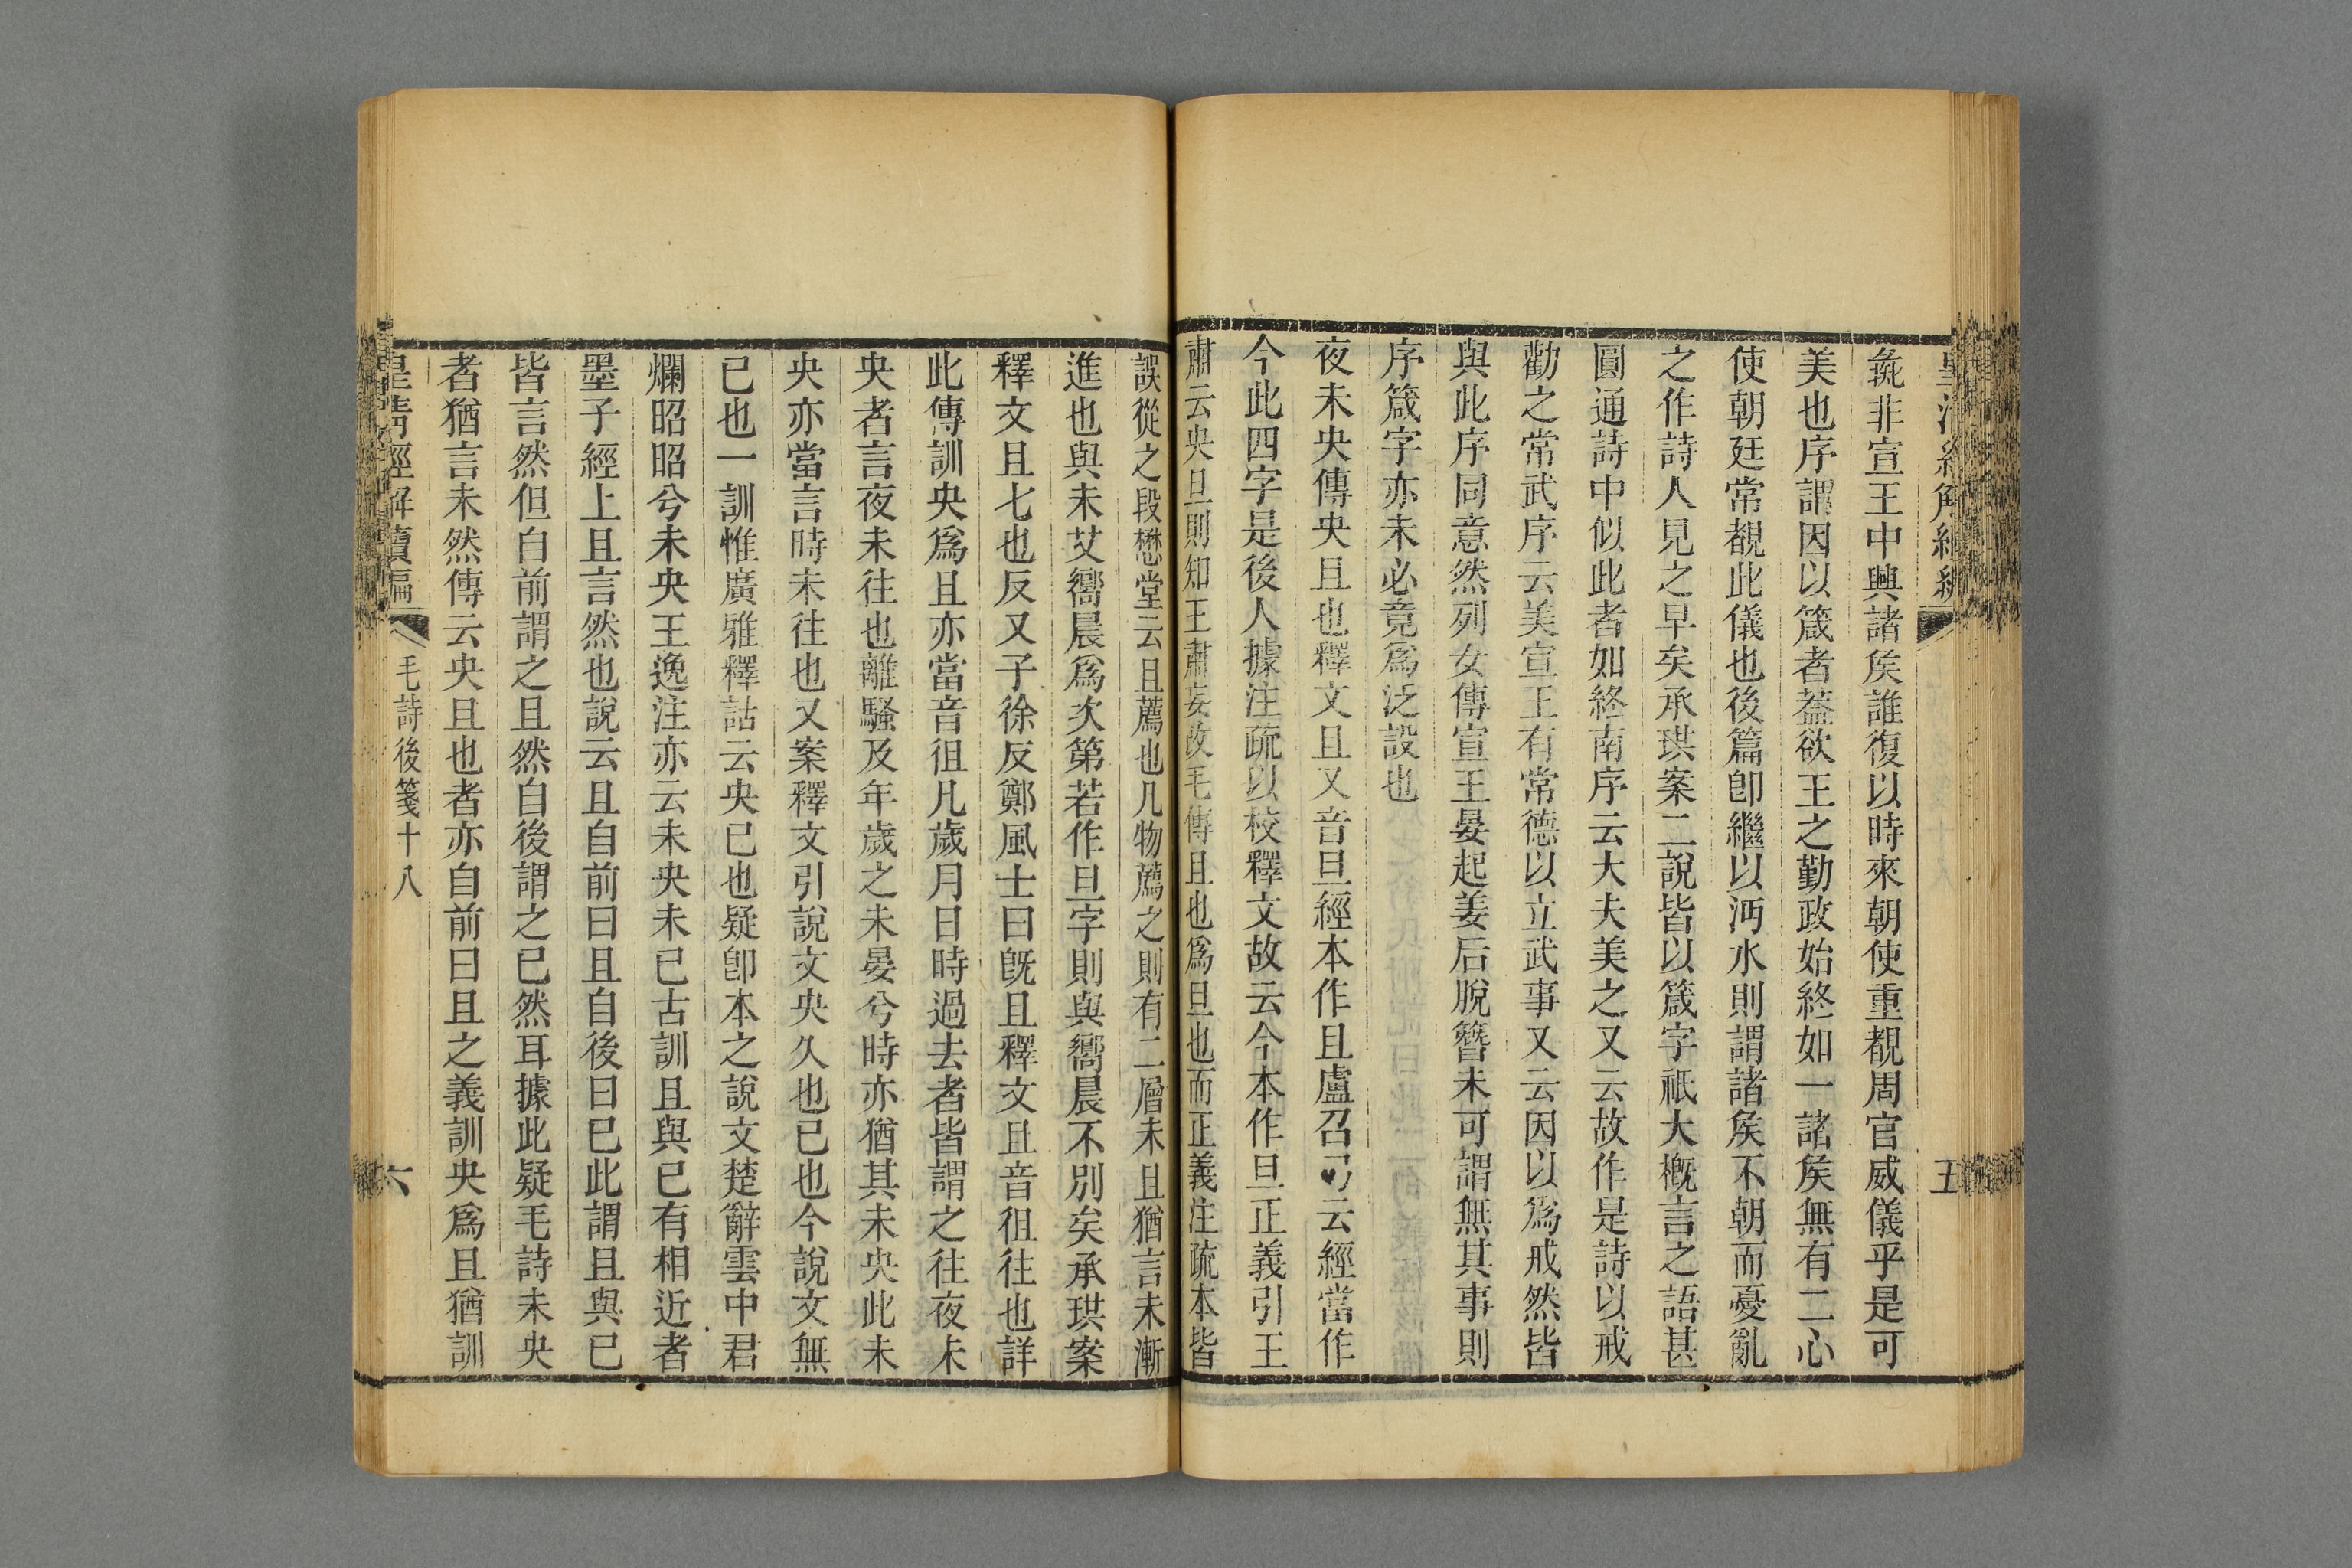 毿非宣王中興諸矦誰復以時來朝使重覩周官威儀乎是可
美也序謂因以箴者葢欲王之勤政始終如一諸矦無有二心
使朝廷常覩此儀也後篇卽繼以沔水則謂諸矦不朝而憂亂
之作詩人見之早矣承珙案二說皆以箴字祗大槪言之語甚
圓通詩中似此者如終南序云大夫美之又云故作是詩以戒
勸之常武序云美宣王有常德以立武事又云因以爲戒然皆
與此序同意然列女傳宣王晏起姜后脫簪未可謂無其事則
序箴字亦未必竟爲泛設也
夜未央傳央且也釋文且又音旦經本作且盧召弓云經當作
今此四字是後人據注疏以校釋文故云今本作旦正義引王
肅云央旦則知王肅妄改毛傳且也爲旦也而正義注疏本皆
誤從之段懋堂云且薦也凡物薦之則有二層未且猶言未漸
進也與未艾嚮晨爲次第若作旦字則與嚮晨不別矣承珙案
釋文且七也反又子徐反鄭風士曰旣且釋文且音徂往也詳
此傳訓央爲且亦當音徂凡歲月日時過去者皆謂之往夜未
央者言夜未往也離騷及年歲之未晏兮時亦猶其未央此未
央亦當言時未往也又案釋文引說文央久也已也今說文無
已也一訓惟廣雅釋詁云央已也疑卽本之說文楚辭雲中君
爛昭昭兮未央王逸注亦云未央未已古訓且與已有相近者
墨子經上且言然也說云且自前曰且自後曰已此謂且與已
皆言然但自前謂之且然自後謂之已然耳據此疑毛詩未央
者猶言未然傳云央且也者亦自前曰且之義訓央爲且猶訓
皇清經解續編 毛詩後箋十八 六